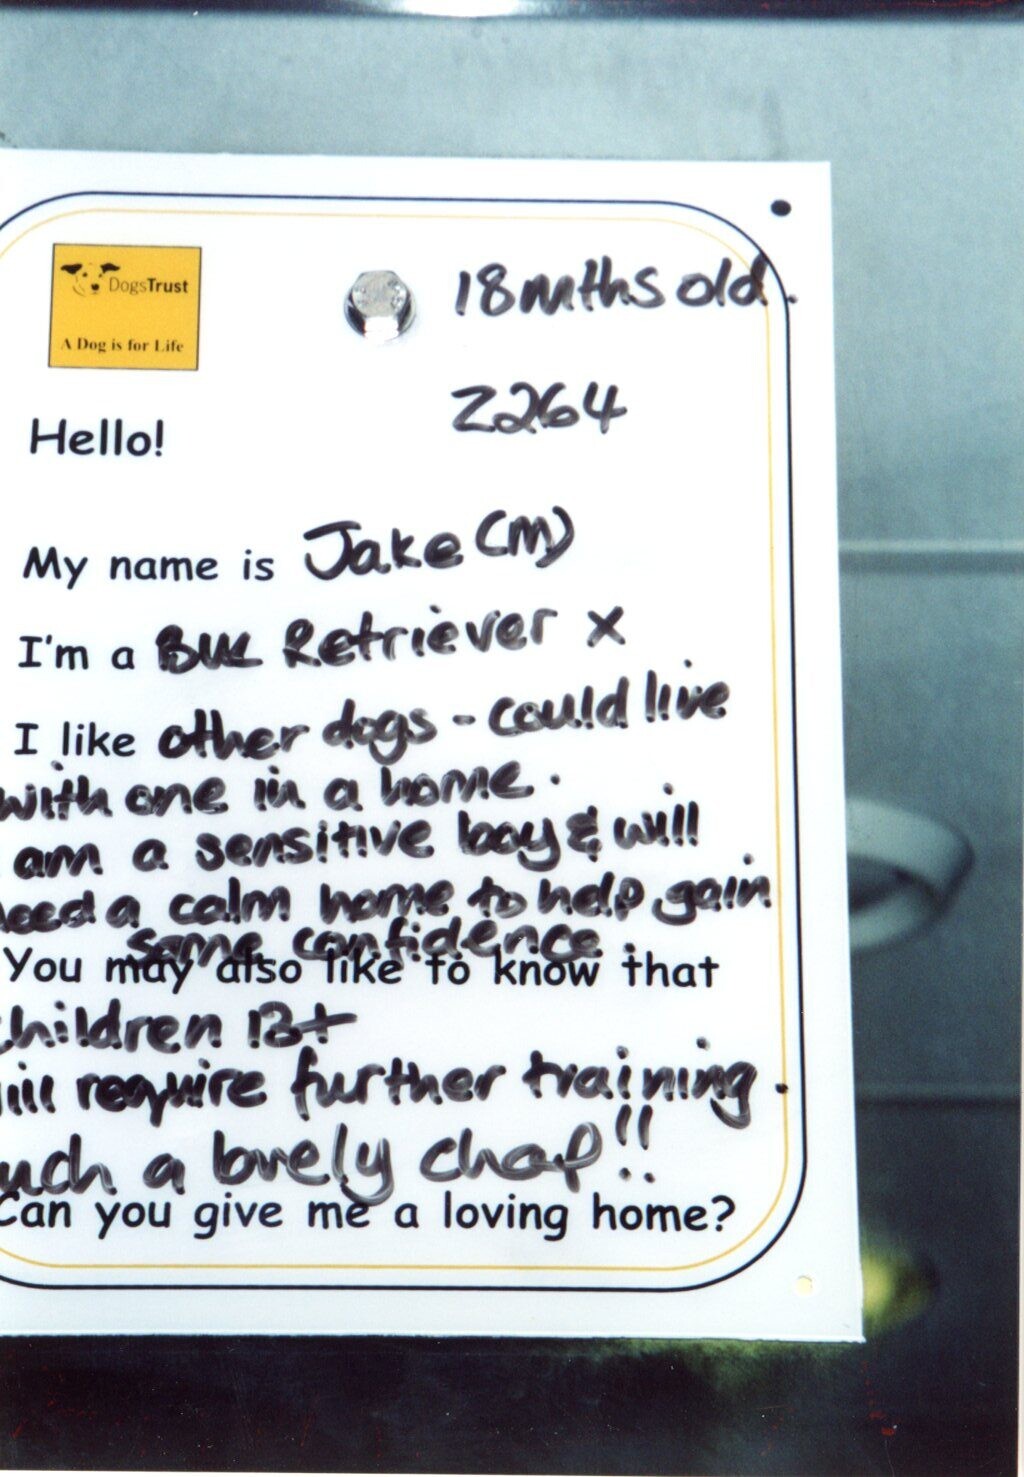 DogsTrust
A Dog is for Life
18mths old.
Z264
Hello!
My name is Jake (m)
I'm a Blk Retriever x
I like other dogs - could live
with one in a home.
am a sensitive boy & will
need a calm home to help gain
some confidence.
You may also like to know that
children 13+
will require further training.
such a lovely chap!!
Can you give me a loving home?